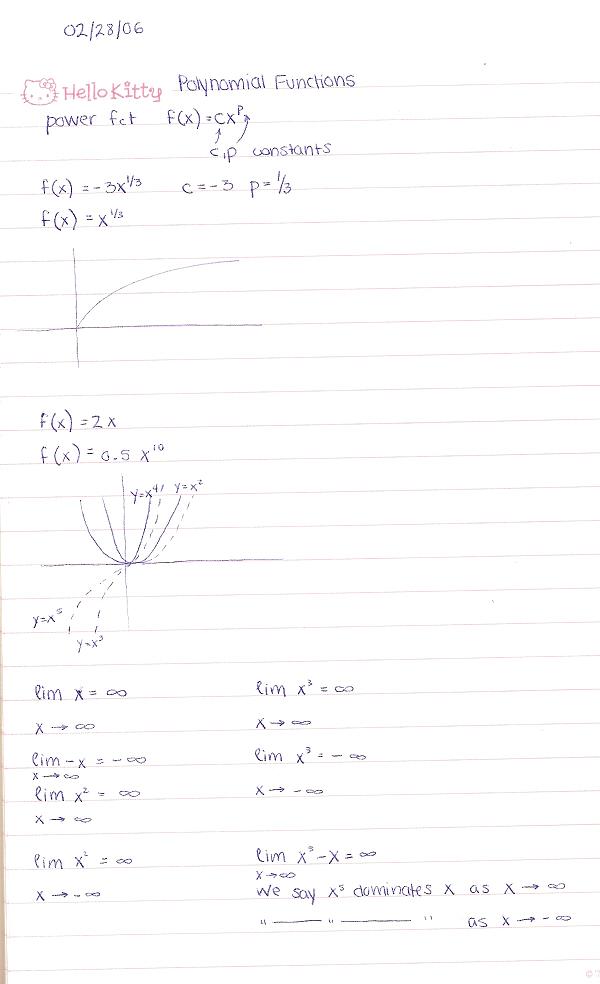 02/28/06
Hello Kitty Polynomial Functions
power fct f(x) = cx^p
c,p constants
f(x) = -3x^1/3 c = -3 p = 1/3
f(x) = x^1/3
f(x) = 2x
f(x) = 0.5 x^10
y=x^4 y=x^2
y=x^5
y=x^3
lim x = ∞
x → ∞
lim -x = -∞
x → ∞
lim x² = ∞
x → ∞
lim x² = ∞
x → -∞
lim x³ = ∞
x → ∞
lim x³ = -∞
x → -∞
lim x³ - x = ∞
x → ∞
We say x³ dominates x as x → ∞
" —— " ——— " as x → -∞